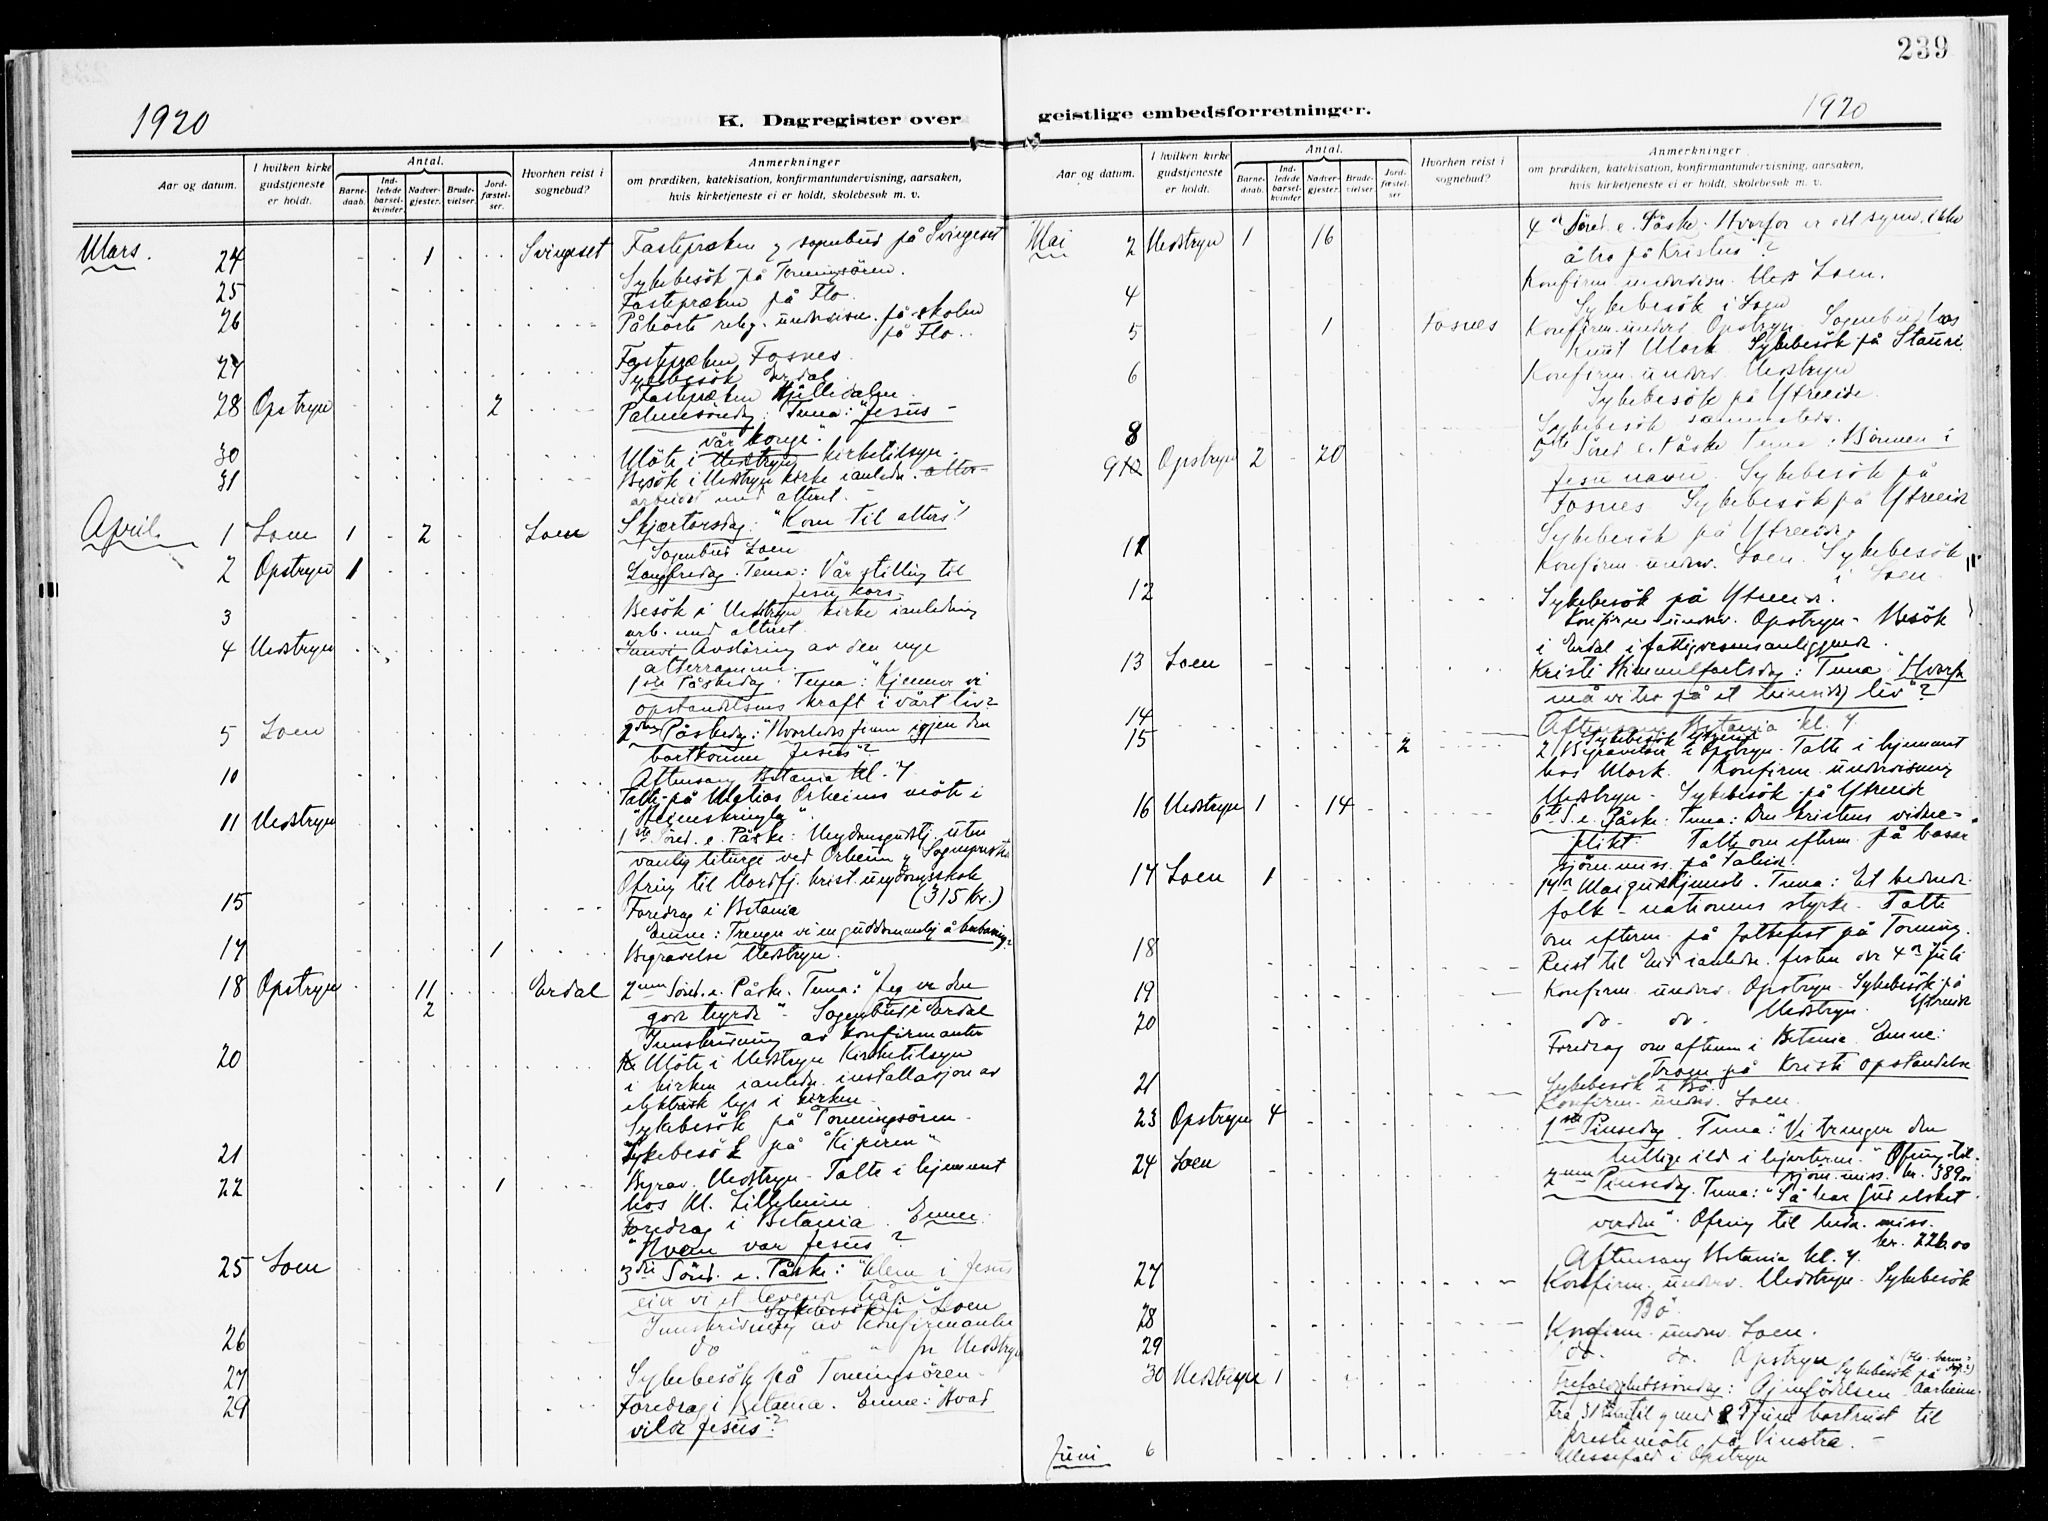 239
1920
K. Dagregister over
geistlige embedsforretninger.
1920
Aar og datum.
I hvilken kirke gudstjeneste er holdt.
Antal.
Barne-daab.
Ind-ledede barsel-kvinder.
Nadver-gjester.
Brude-vielser.
Jord-fæstel-ser.
Hvorhen reist i sognebud?
Anmerkninger
om prædiken, katekisation, konfirmantundervisning, aarsaken,
hvis kirketjeneste ei er holdt, skolebesøk m. v.
Mars. 24 1 Svingeset Fastepræken og sognebud på Svingeset
25 Sykebesök på Tenningsören.
26 Fastepræken på Flo.
Påhörte relig. undervisn. på skolen
på Flo.
27 Fastepræken Fosnes.
Sykebesök Erdal.
28 Opstryn 2 Fastepræken Hjelledalen
Palmesöndag: Tema: "Jesus
vår konge".
30 Möte i Nedstryn kirketilsyn.
31 Besök i Nedstryn kirke i anledn.
arbeidet med alteret.
April. 1 Loen 1 2 Loen Skjærtorsdag: "Kom til alters!"
Sognebud Loen
2 Opstryn 1 Langfredag: Tema: Vår stilling til
Jesu kors.
3 Besök i Nedstryn kirke i anledning
arb. med alteret.
4 Nedstryn Avsløring av den nye
1ste Påskedag. Tema: "Kjenner vi
opstandelsens kraft i vårt liv?
5 Loen 2den Påskedag: "Hvorledes finne igjen den
bortkomne Jesus"?
10 Aftensang Betania kl. 7
Talte på Matias Orheims möte i
"Heimskringla".
11 Nedstryn 1ste Sønd. e. Påske: Ungdomsgudstj. uten
vanlig liturgi ved Orheim og Sognepresten
Ofring til Nordfj. krist. ungdomsskole
(315 kr.)
15 Foredrag i Betania
Emne: Trenger vi en guddommelig åbenbaring?
17 1 Begravelse Nedstryn.
18 Opstryn 11 Erdal 2nen Sönd. e. Påske. Tema: "Jeg er den
2 gode hyrde". Sognebud i Erdal
Innskrivning av konfirmanter
20 Möte i Nedstryn Kirketilsyn
i kirken i anledn. installasjon av
elektrisk lys i kirken.
Sykebesök på Tonningsören.
21 Sykebesök på "Kipern"
22 1 Begrav. Nedstryn. Talte i hjemmet
hos M. Lillehein
Foredrag i Betania. Emne:
"Hvem var Jesus?
25 Loen 3die Sönd. e. Påske: "Alene i Jesus
eier vi et levende håp"
Sykebesök i Loen
26 Innskrivning av Konfirmanter
do " " fr Nedstryn
27 Sykebesök på Tonningsören.
29 Foredrag i Betania. Emne: "Hvad
vilde Jesus"?
Aar og datum.
I hvilken kirke gudstjeneste er holdt.
Antal.
Barne-daab.
Ind-ledede barsel-kvinder
Nadver-gjester.
Brude-vielser.
Jord-fæstel-ser
Hvorhen reist i sognebud?
Anmerkninger
om prædiken, katekisation, konfirmantundervisning, aarsaken,
hvis kirketjeneste ei er holdt, skolebesøk m. v.
Mai 2 Nedstryn 1 16 4de Sönd. e. Påske. Hvorfor er det synd ikke
å tro på Kristus?
4 Konfirm. undervisn. Loen.
Sykebesök i Loen
5 1 Fosnes Konfirm. underv. Opstryn. Sognebud hos
Knut Mork. Sykebesök på Stauri
6 Konfirm. underv. Nedstryn
Sykebesök på Ytreeide.
8 Sykebesök sammesteds.
9 Opstryn 2 20 5te Sönd. e. Påske Tema: Bönnen i
Jesu navn. Sykebesök på
Fosnes Sykebesök på Ytreeide
11 Sykebesök på Ytreeide.
Konfirm. underv. Loen. Sykebesök
i Loen.
12 Sykebesök på Ytreeide.
Konfirm. underv. Opstryn. Besök
i Erdal i fattigvesensanliggende.
13 Loen Kristi Himmelfartsdag: Tema "Hvorfor
må vi tro på et hinsidig liv"?
14 Aftensang Betania kl. 7
15 2 Sykebesök Ytreeid
Opstryn. Talte i hjemmet
hos Mork. Konfirm. undervisning
Nedstryn. Sykebesök på Ytreeide
16 Nedstryn 1 14 6te S. e. Påske. Tema: Den kristnes vidne-
plikt. Talte om efterm. på basar
sjömmiss. på Faleide.
17 Loen 1 17de Maigudstjeneste. Tema: Et bedende
folk – nationens styrke. Talte
om efterm. på folkefest på Tonning.
18 Reist til Eid i anledn. festen der 4de Juli
19 Konfirm. underv. Opstryn. Sykebesök på
Ytreeide
20 do. do. Nedstryn.
Foredrag om aftenen i Betania. Emne:
Troen på Kristi opstandelse
21 Sykebesök i Bö.
Konfirm. underv. Loen.
23 Opstryn 4 1ste Pinsedag. Tema: "Vi trenger den
hellige ild i hjerterne." Ofring til
sjöm. miss. kr. 389.00
24 Loen 2nen Pinsedag. Tema: "Så har Gud elsket
verden". Ofring til hedn. miss.
kr. 226.00
Aftensang Betania kl. 7.
27 Konfirm. underv. Nedstryn. Sykebesök
Bö.
28 Konfirm. underv. Loen.
29 do. do. Opstryn
30 Nedstryn 1 Sykebesök på
Trefoldighetssöndag: Gjenfödelsen Aarheim.
Fra 31 Mai til og med Juni bortreist til
prestemöte på Vinstra.
Juni 6 Messefald i Opstryn